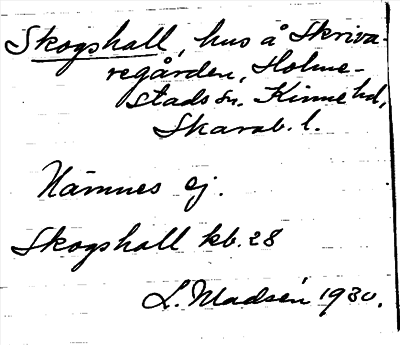 Skogshall, hus å Skriva-
regården, Holme-
stads sn. Kinne hd,
Skarab. l.
Nämnes ej.
Skogshall kb. 28
L. Madsén 1930.